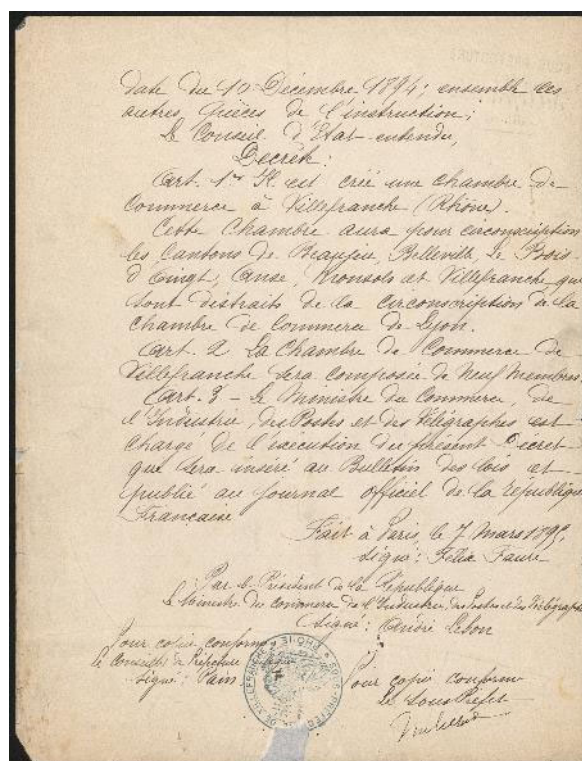 date du 10 Décembre 1894; ensemble les
autres pièces de l'instruction;
Le Conseil d'Etat entendu,
Decrète:
Art. 1er Il est créé une chambre de
Commerce à Villefranche (Rhône).
Cette Chambre aura pour circonscription
les Cantons de Beaujeu, Belleville, Le Bois
d'Oingt, Anse, Monsols et Villefranche qui
sont distraits de la circonscription de la
Chambre de Commerce de Lyon.
Art. 2 La Chambre de Commerce de
Villefranche sera composée de Neuf Membres.
Art. 3 - Le Ministre du Commerce, de
l'Industrie, des Postes et des Télégraphes est
chargé de l'exécution du présent Decret
qui sera inséré au Bulletin des lois et
publié au Journal officiel de la République
Française
Fait à Paris, le 7 Mars 1895,
Signé: Félix Faure
Par le Président de la République
Le Ministre du Commerce de l'Industrie, des Postes et des Télégraphes
Signé: André Lebon
Pour copie conforme
le Conseiller de Préfecture
Signé: Pain
Pour copie conforme
Le Sous Préfet
SOUS-PRÉFECTURE DE VILLEFRANCHE RHONE